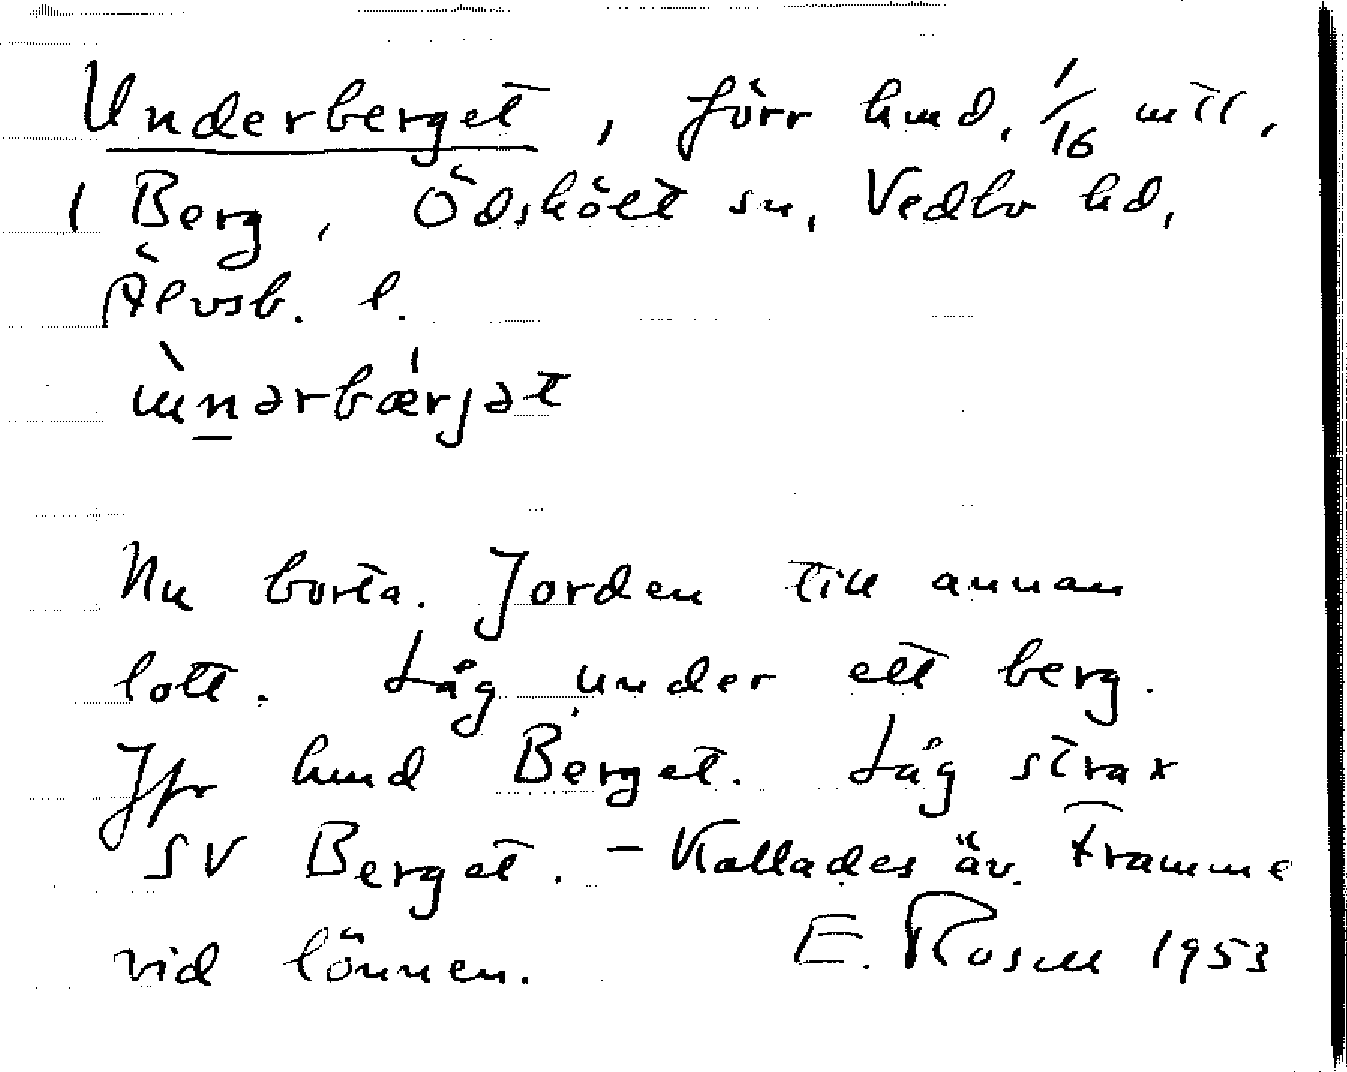 Underberget, förr hmd, 1/16 mtl,
1 Berg, ÖdsköLt sn, Vedbo hd,
Älvsb. l.
ùnərbǽrjət
Nu borta. Jorden till annan
lott. Låg under ett berg.
Jfr hmd Berget. Låg strax
SV Berget. – Kallades äv. Framme
vid lönnen. E. Rosell 1953